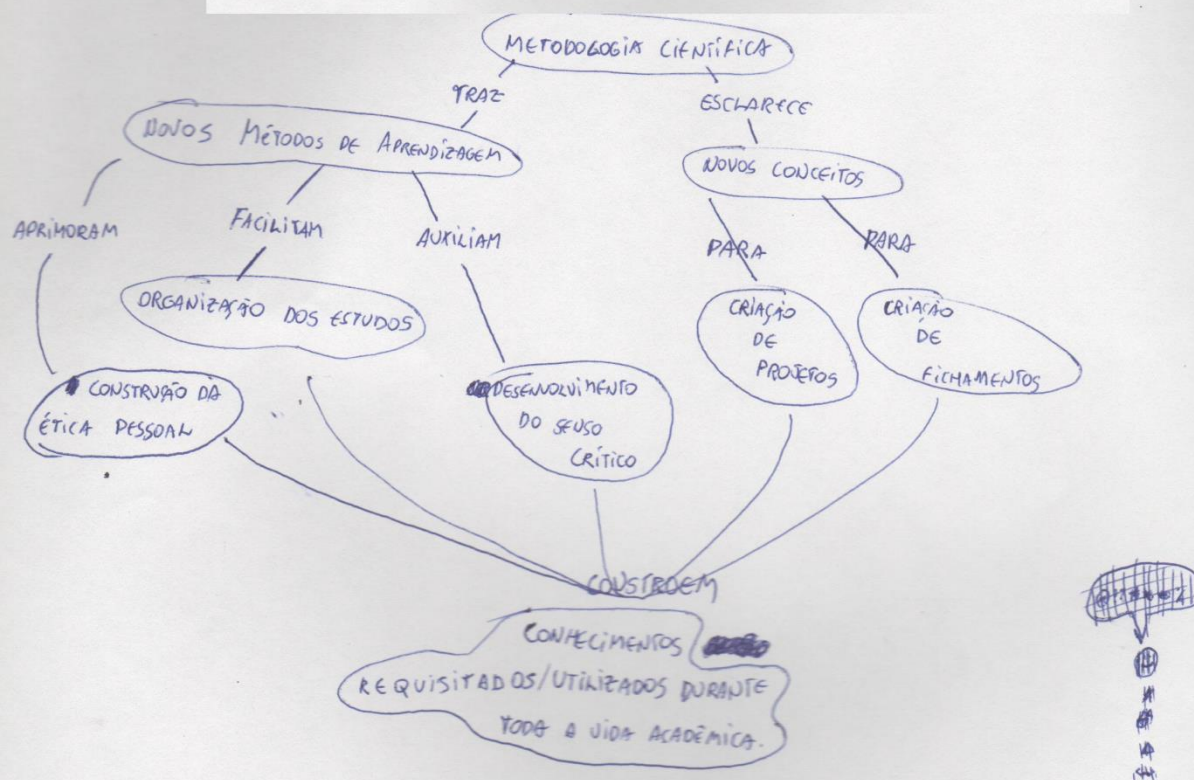 METODOLOGIA CIENTÍFICA
TRAZ
ESCLARECE
NOVOS MÉTODOS DE APRENDIZAGEM
NOVOS CONCEITOS
APRIMORAM
FACILITAM
AUXILIAM
PARA
PARA
ORGANIZAÇÃO DOS ESTUDOS
CRIAÇÃO
DE
PROJETOS
CRIAÇÃO
DE
FICHAMENTOS
CONSTRUÇÃO DA
ÉTICA PESSOAL
DESENVOLVIMENTO
DO SENSO
CRÍTICO
CONSTROEM
CONHECIMENTOS
REQUISITADOS/UTILIZADOS DURANTE
TODA A VIDA ACADÊMICA.